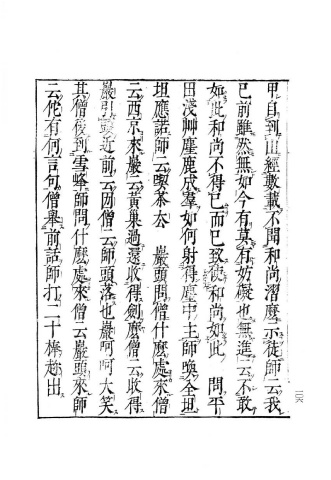 甲自到山經數載不聞和尚濳麼示徒師云我
已前雖然無如今有莫有妨礙也無進云不敢
如此和尚不得已而已致使和尚如此　問平
田淺艸塵鹿成羣如何射得麈中主師喚全坦
坦應諾師云喫茶去　巖頭問僧什麼處來僧
云西京來巖云黃巢過還收得劍麼僧云收得
巖引頭近前云㘞僧云師頭落也巖呵呵大笑
其僧後到雪峰師問什麼處來僧云巖頭來師
云佗有何言句僧舉前話師打二十棒趂出